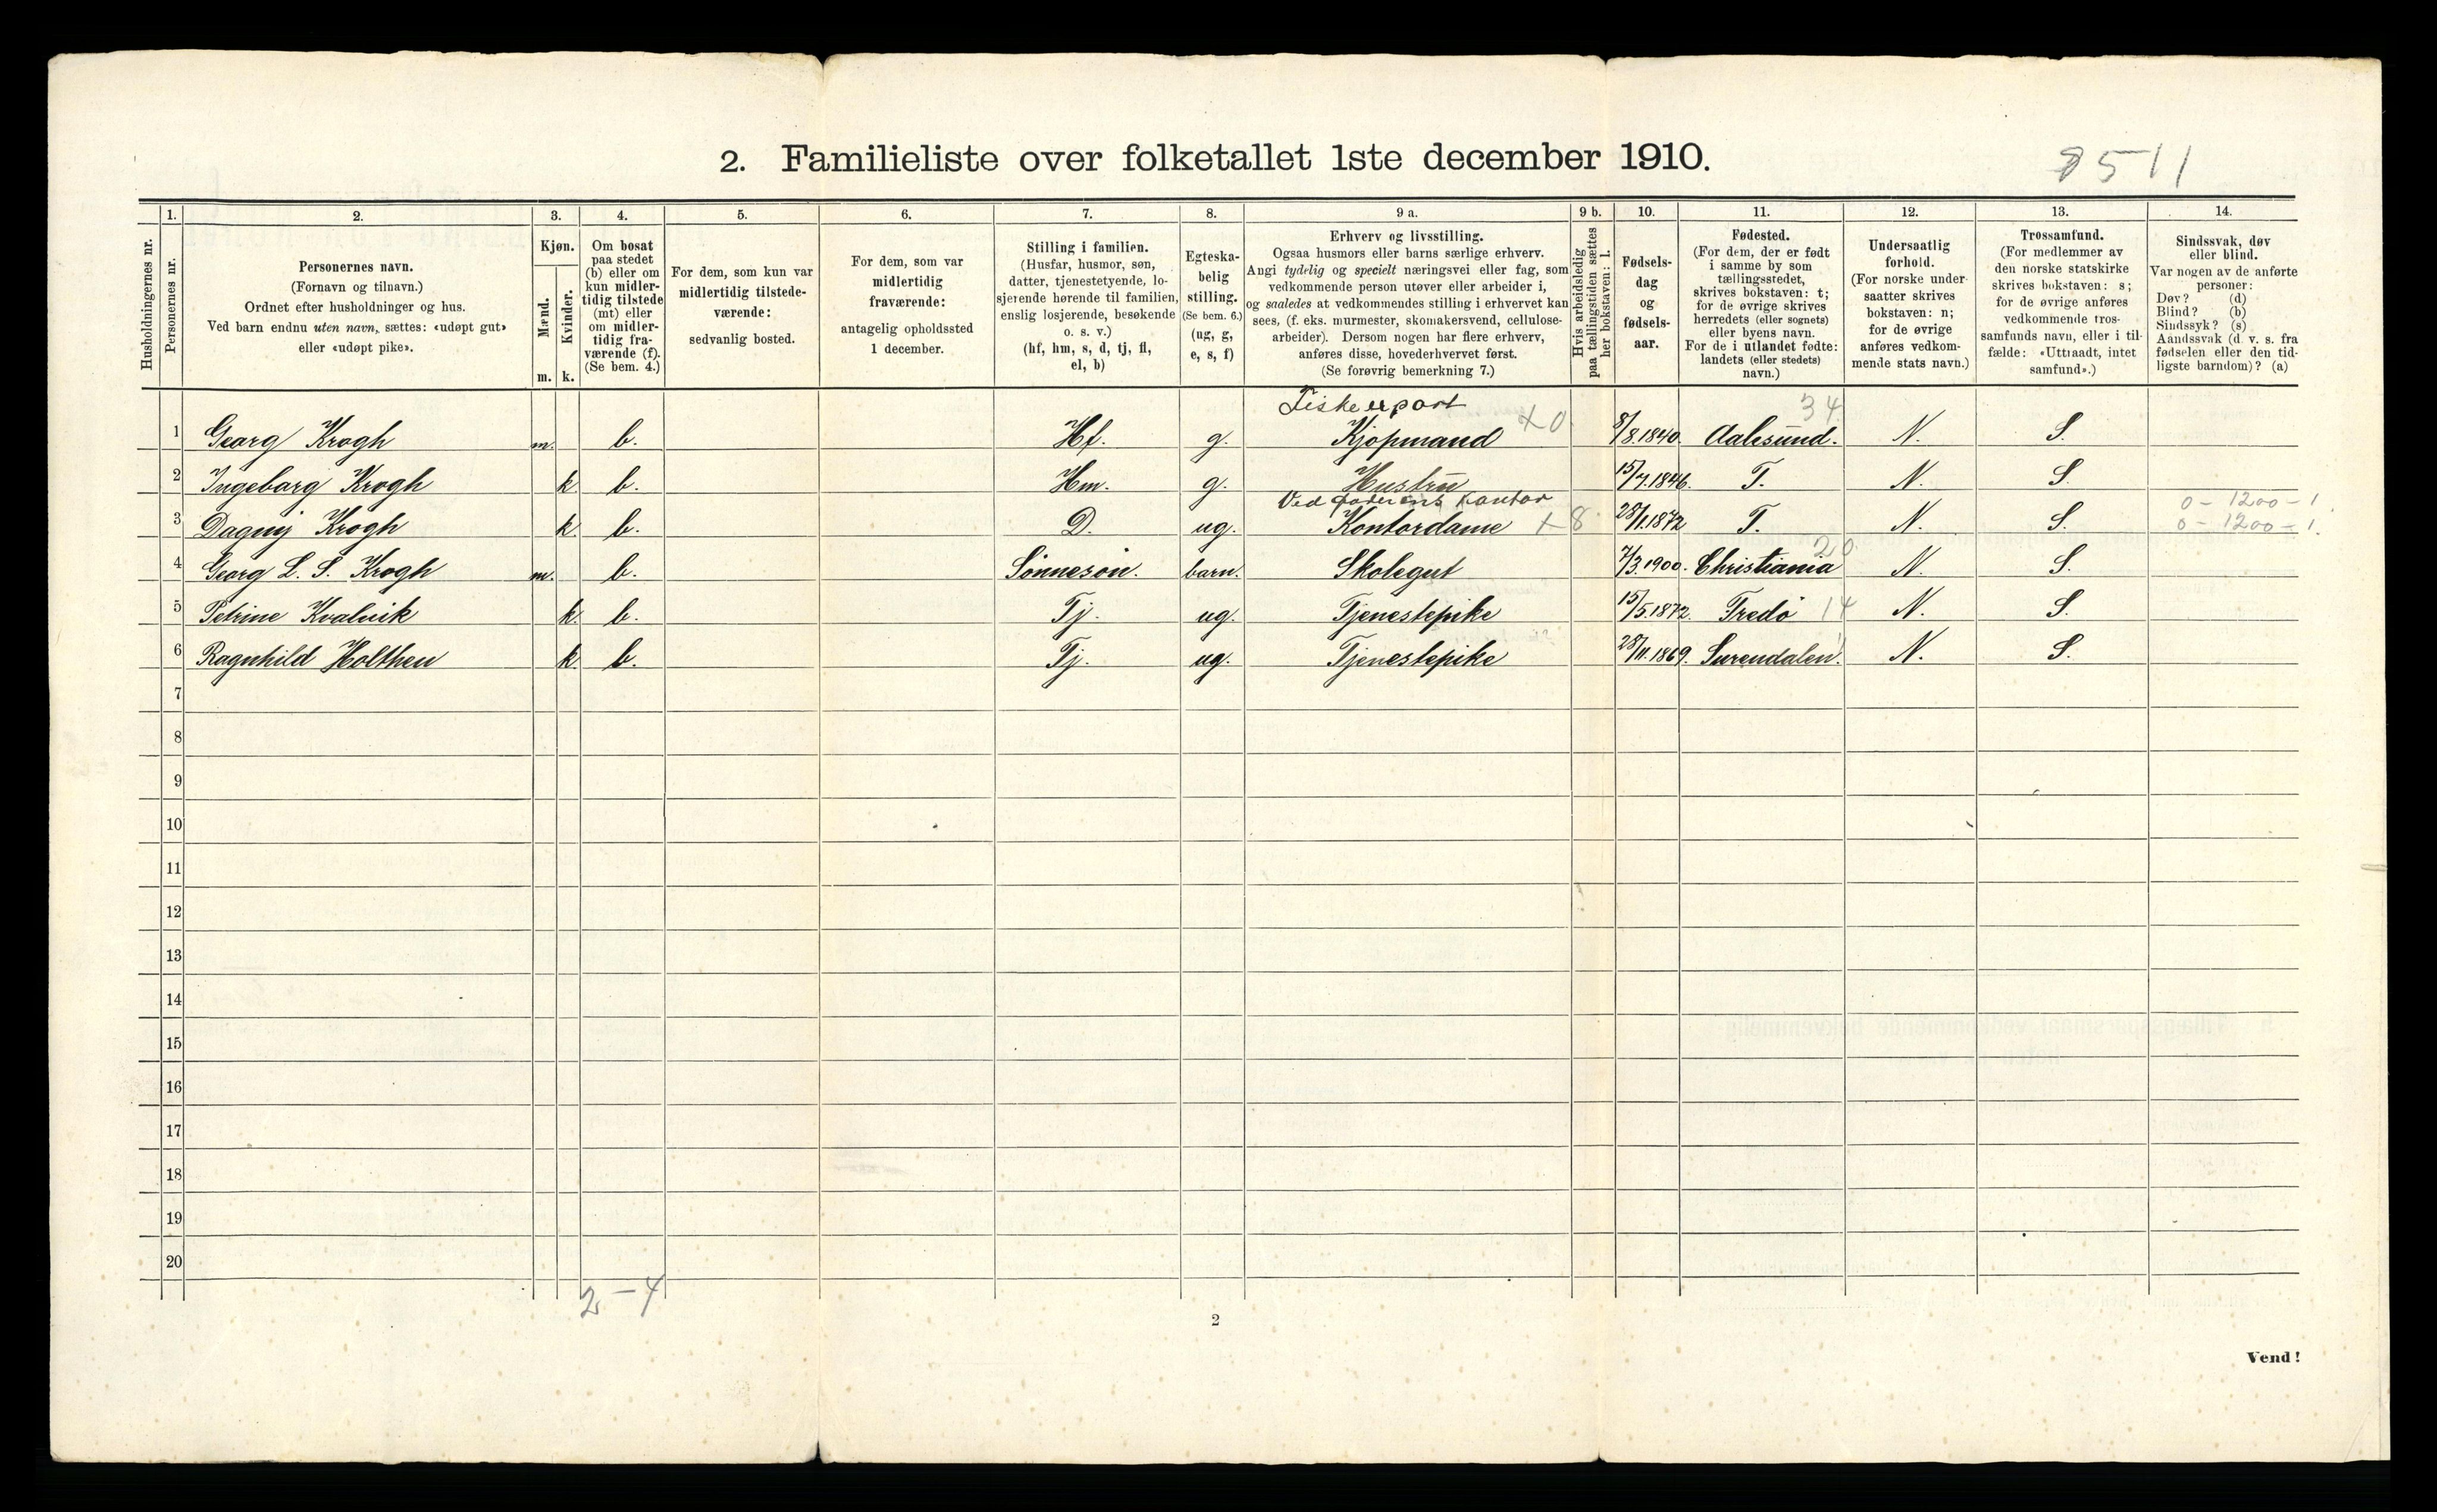 2. Familieliste over folketallet 1ste december 1910.
8511
1. 2. 3. 4. 5. 6. 7. 8. 9 a. 9 b. 10. 11. 12. 13. 14.
Husholdningernes nr.
Personernes nr.
Personernes navn.
(Fornavn og tilnavn.)
Ordnet efter husholdninger og hus.
Ved barn endnu uten navn, sættes: «udøpt gut»
eller «udøpt pike».
Kjøn.
Mænd.
Kvinder.
m. k.
Om bosat
paa stedet
(b) eller om
kun midler-
tidig tilstede
(mt) eller
om midler-
tidig fra-
værende (f).
(Se bem. 4.)
For dem, som kun var
midlertidig tilstede-
værende:
sedvanlig bosted.
For dem, som var
midlertidig
fraværende:
antagelig opholdssted
1 december.
Stilling i familien.
(Husfar, husmor, søn,
datter, tjenestetyende, lo-
sjerende hørende til familien,
enslig losjerende, besøkende
o. s. v.)
(hf, hm, s, d, tj, fl,
el, b)
Egteska-
belig
stilling.
(Se bem. 6.)
(ug, g,
e, s, f)
Erhverv og livsstilling.
Ogsaa husmors eller barns særlige erhverv.
Angi tydelig og specielt næringsvei eller fag, som
vedkommende person utøver eller arbeider i,
og saaledes at vedkommendes stilling i erhvervet kan
sees, (f. eks. murmester, skomakersvend, cellulose-
arbeider). Dersom nogen har flere erhverv,
anføres disse, hovederhvervet først.
(Se forøvrig bemerkning 7.)
Hvis arbeidsledig
paa tællingstiden sættes
her bokstaven: l.
Fødsels-
dag
og
fødsels-
aar.
Fødested.
(For dem, der er født
i samme by som
tællingsstedet,
skrives bokstaven: t;
for de øvrige skrives
herredets (eller sognets)
eller byens navn.
For de i utlandet fødte:
landets (eller stedets)
navn.)
Undersaatlig
forhold.
(For norske under-
saatter skrives
bokstaven: n;
for de øvrige
anføres vedkom-
mende stats navn.)
Trossamfund.
(For medlemmer av
den norske statskirke
skrives bokstaven: s;
for de øvrige anføres
vedkommende tros-
samfunds navn, eller i til-
fælde: «Uttraadt, intet
samfund».)
Sindssvak, døv
eller blind.
Var nogen av de anførte
personer:
Døv? (d)
Blind? (b)
Sindssyk? (s)
Aandssvak (d. v. s. fra
fødselen eller den tid-
ligste barndom)? (a)
Fiskeexport 34
1 Georg Krogh m. b. Hf. g. Kjøpmand x0 8/8.1840. Aalesund. N. S.
2 Ingeborg Krogh k. b. Hm. g. Hustru 15/7.1846. T. N. S.
Ved faderens Kontor 0 - 1200 - 1
3 Dagny Krogh k. b. D. ug. Kontordame x 8 28/1.1872 T. N. S. 0 - 1200 - 1.
20
4 Georg L. S. Krogh m. b. Sønnesøn. barn. Skolegut 7/3.1900. Christiania N. S.
5 Petrine Kvalvik k. b. Tj. ug. Tjenestepike 15/5.1872. Fredö 14 N. S.
6 Ragnhild Holthen k. b. Tj. ug. Tjenestepike 28/11.1869. Surendalen. N. S.
7
8
9
10
11
12
13
14
15
16
17
18
19
20
2 - 4
2
Vend!